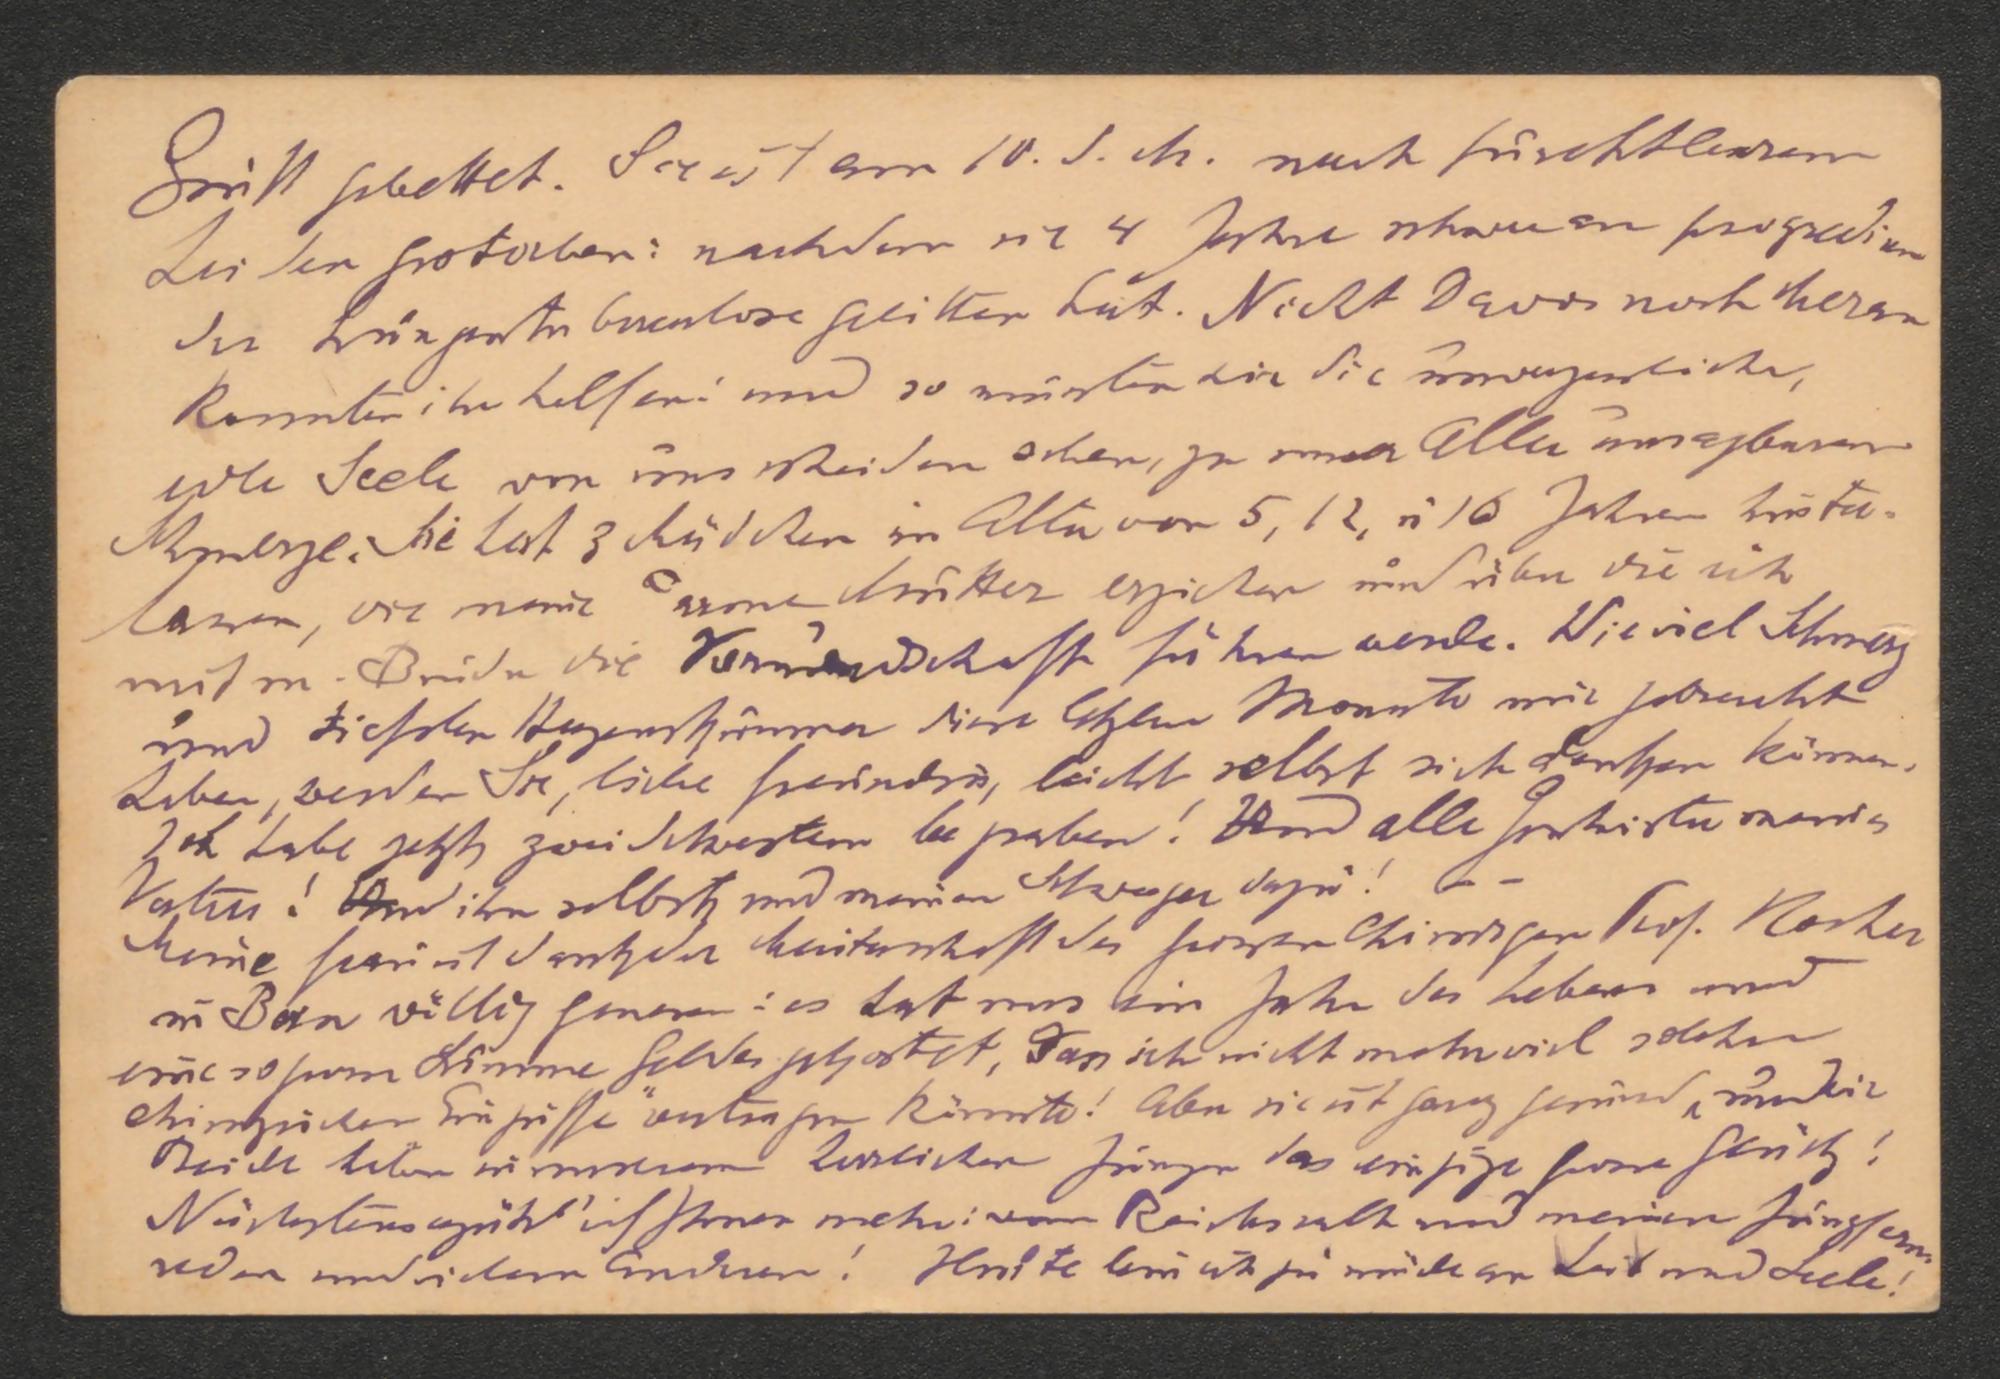 Gruft gebettet. Sie ist am 10. d. M. nach furchtbarem
Leiden gestorben: nachdem sie 4 Jahre schwer an progredien
der Lungentuberculose gelitten hat. Nicht Davos noch Meran
konnten ihr helfen: und so mussten wir die
edle Seele von uns scheiden sehen, zu unser Aller unsagbarem
Schmerze. Sie hat 3 Mädchen im Alter von 5, 12, u 16 Jahren hinter-
lassen, die meine arme Mutter erziehen und über die ich
mit m. Bruder die Vormundschaft führen werde. Wieviel Schmerz
und tiefsten Herzenskummer diese letzten Monate mir gebracht
haben, werden Sie, liebe Freundin, leicht selbst sich denken können.
Ich habe jetzt zwei Schwestern begraben! Und alle Geschwister meines
Vaters! Und ihn selbst und meinen Schwager dazu! – –
Meine Frau ist dank der Meisterschaft des grossen Chirurgen Prof. Kocher
in Bern völlig genesen: es hat uns ein Jahr des Lebens und
eine so grosse Summe Geldes gekostet, dass ich nicht mehr viel solcher
chirurgischen Eingriffe vertragen könnte! Aber sie ist ganz gesund, und wir
Beide haben in unserem herrlichen Jungen das einzige grosse Glück!
Nächstens erzähl' ich Ihnen mehr: vom Reichsrath und meinen Jungfern-
reden und vielem Anderen! Heute bin ich zu müde an Leib und Seele!